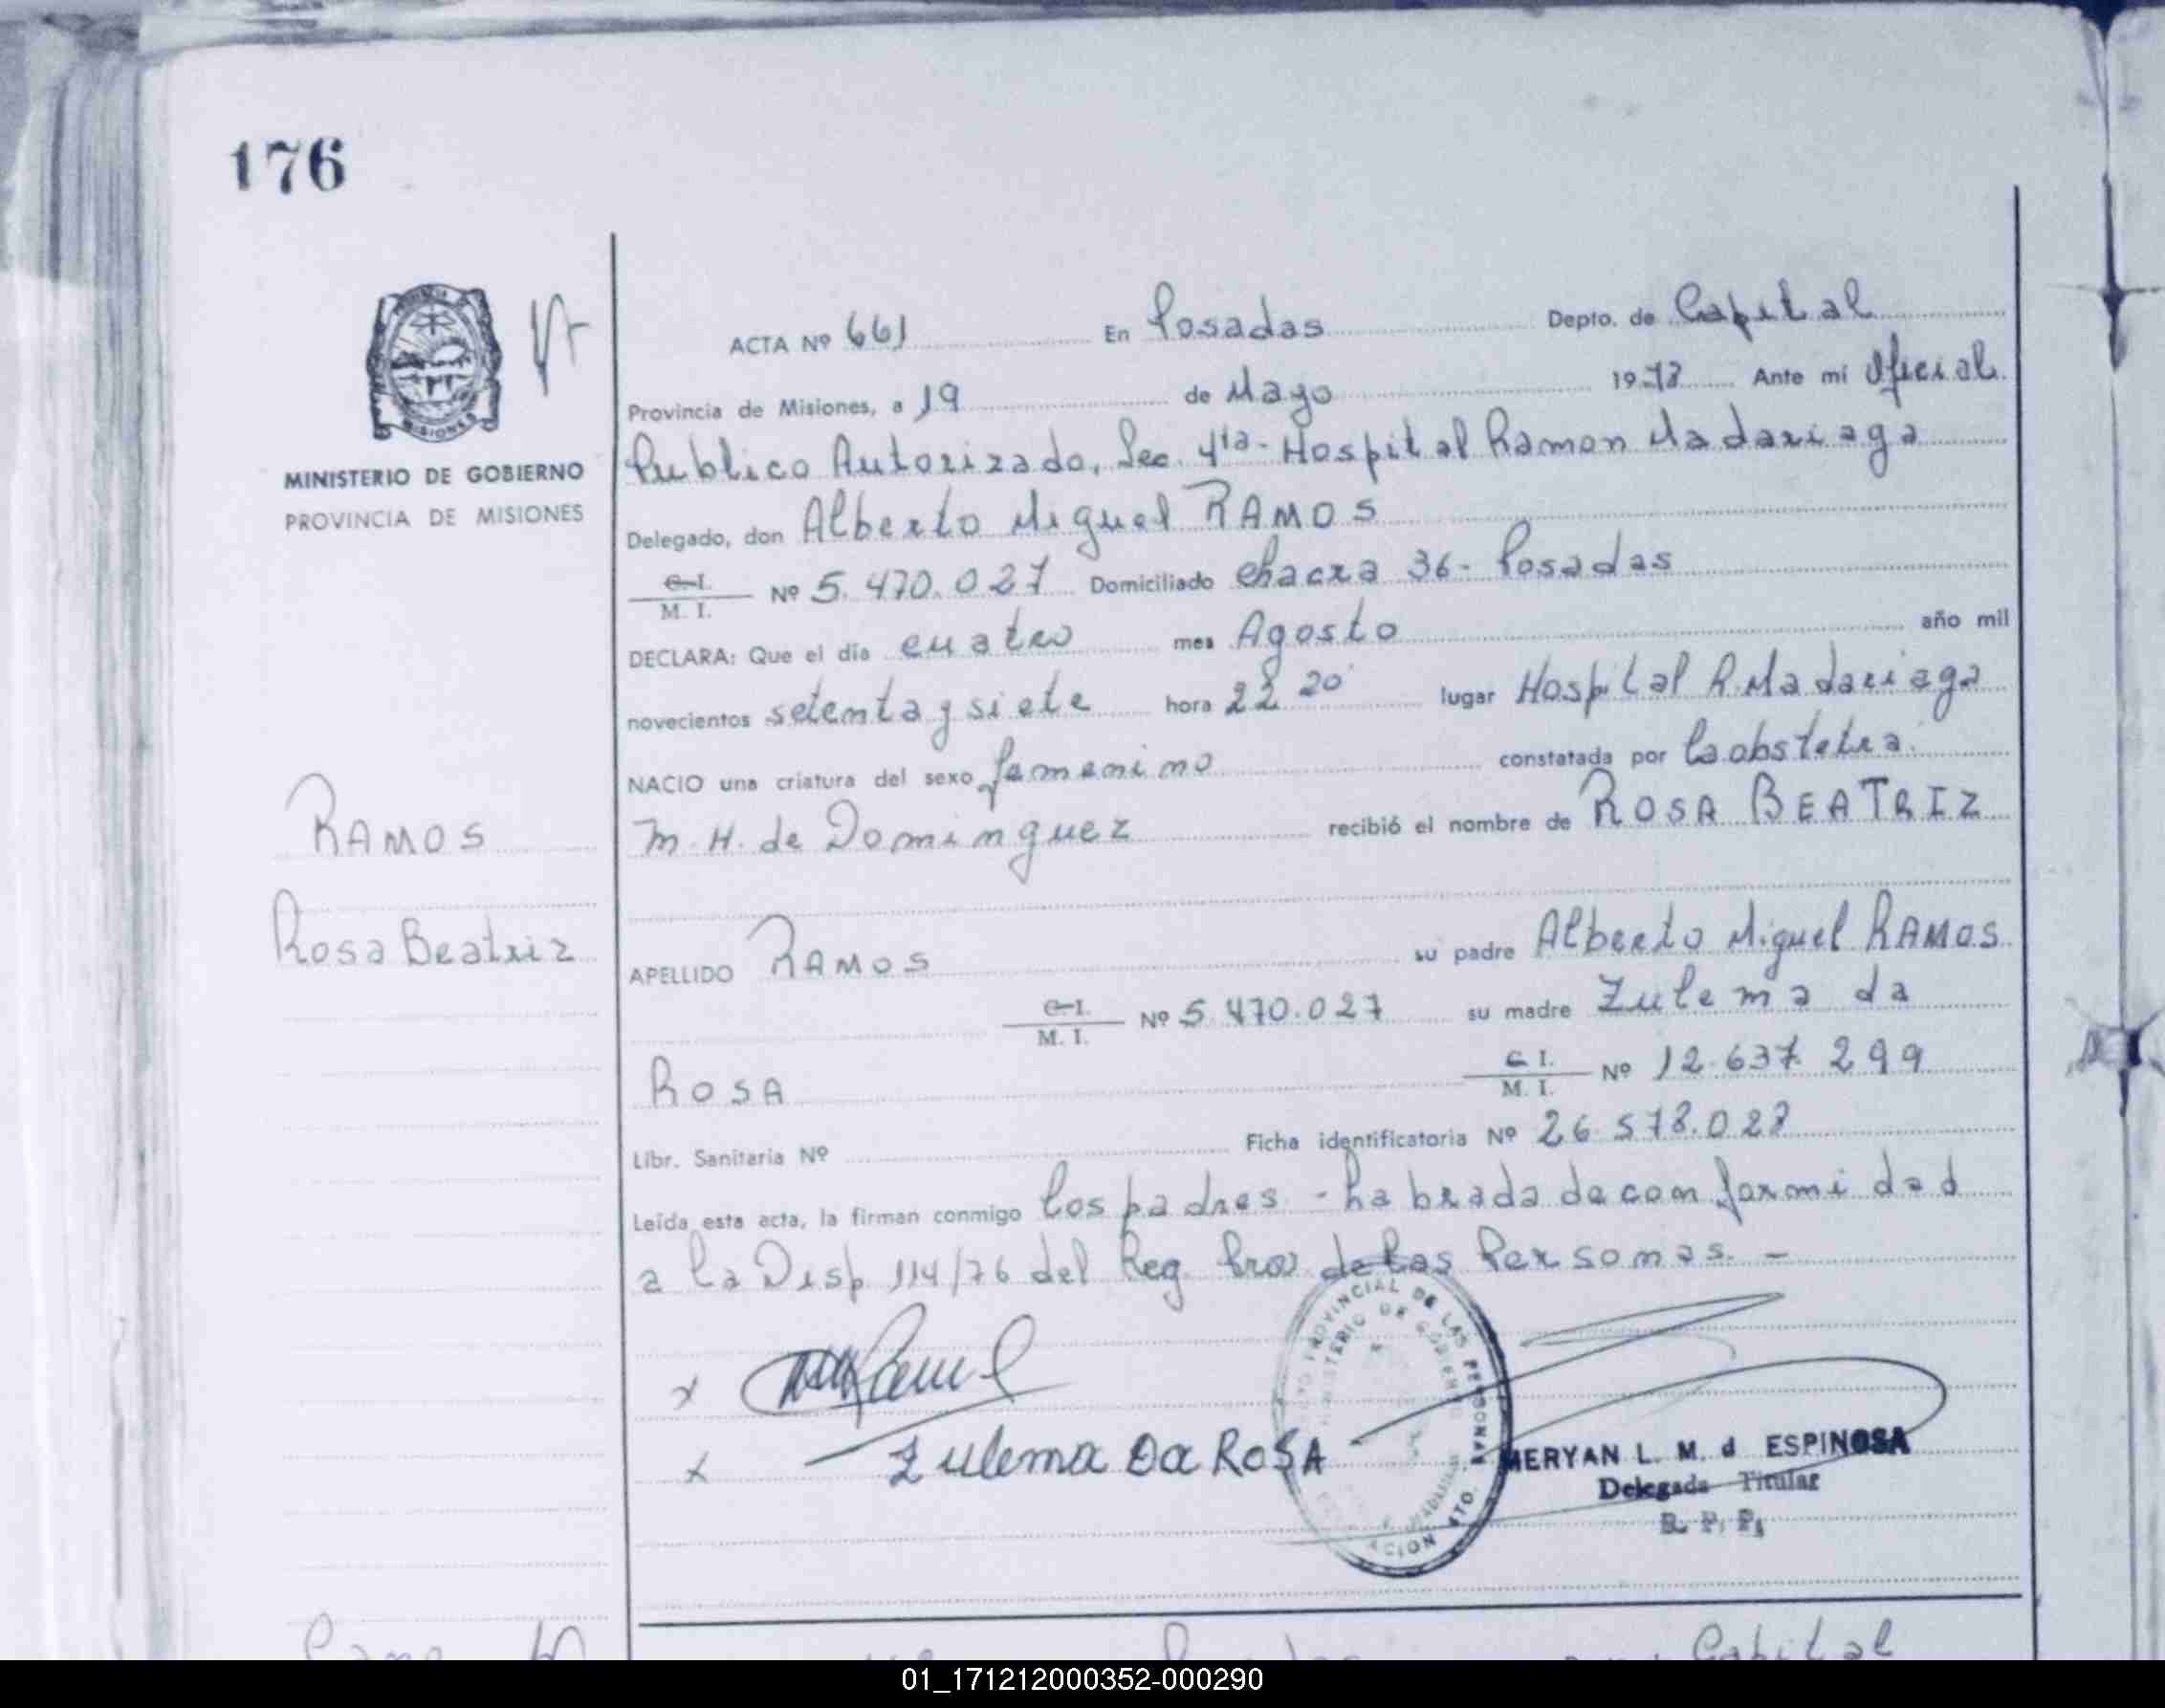 176
ACTA Nº 661 En Posadas Depto. de Capital
Provincia de Misiones, a 19 de Mayo 1978 Ante mí Oficial
Publico Autorizado, Sec. 4ta - Hospital Ramon Madariaga
MINISTERIO DE GOBIERNO
PROVINCIA DE MISIONES
Delegado, don Alberto Miguel RAMOS
C.I. / M. I. Nº 5.470.027 Domiciliado Chacra 36 - Posadas
DECLARA: Que el día cuatro mes Agosto año mil
novecientos setenta y siete hora 22 20' lugar Hospital R. Madariaga
NACIO una criatura del sexo femenino constatada por la obstetra.
M. H. de Dominguez recibió el nombre de ROSA BEATRIZ
RAMOS
Rosa Beatriz
APELLIDO RAMOS su padre Alberto Miguel RAMOS
C.I. / M. I. Nº 5.470.027 su madre Zulema da
ROSA C I. / M. I. Nº 12.637.299
Libr. Sanitaria Nº Ficha identificatoria Nº 26.578.028
Leída esta acta, la firman conmigo los padres - labrada de conformidad
a la Disp 114/76 del Reg. Prov de las Personas. -
PROVINCIAL DE LAS PERSONAS
MINISTERIO DE GOBIERNO
x
x Zulema Da ROSA
MERYAN L. M. d ESPINOSA
Delegada Titular
R. P. P.
Capital
01_171212000352-000290